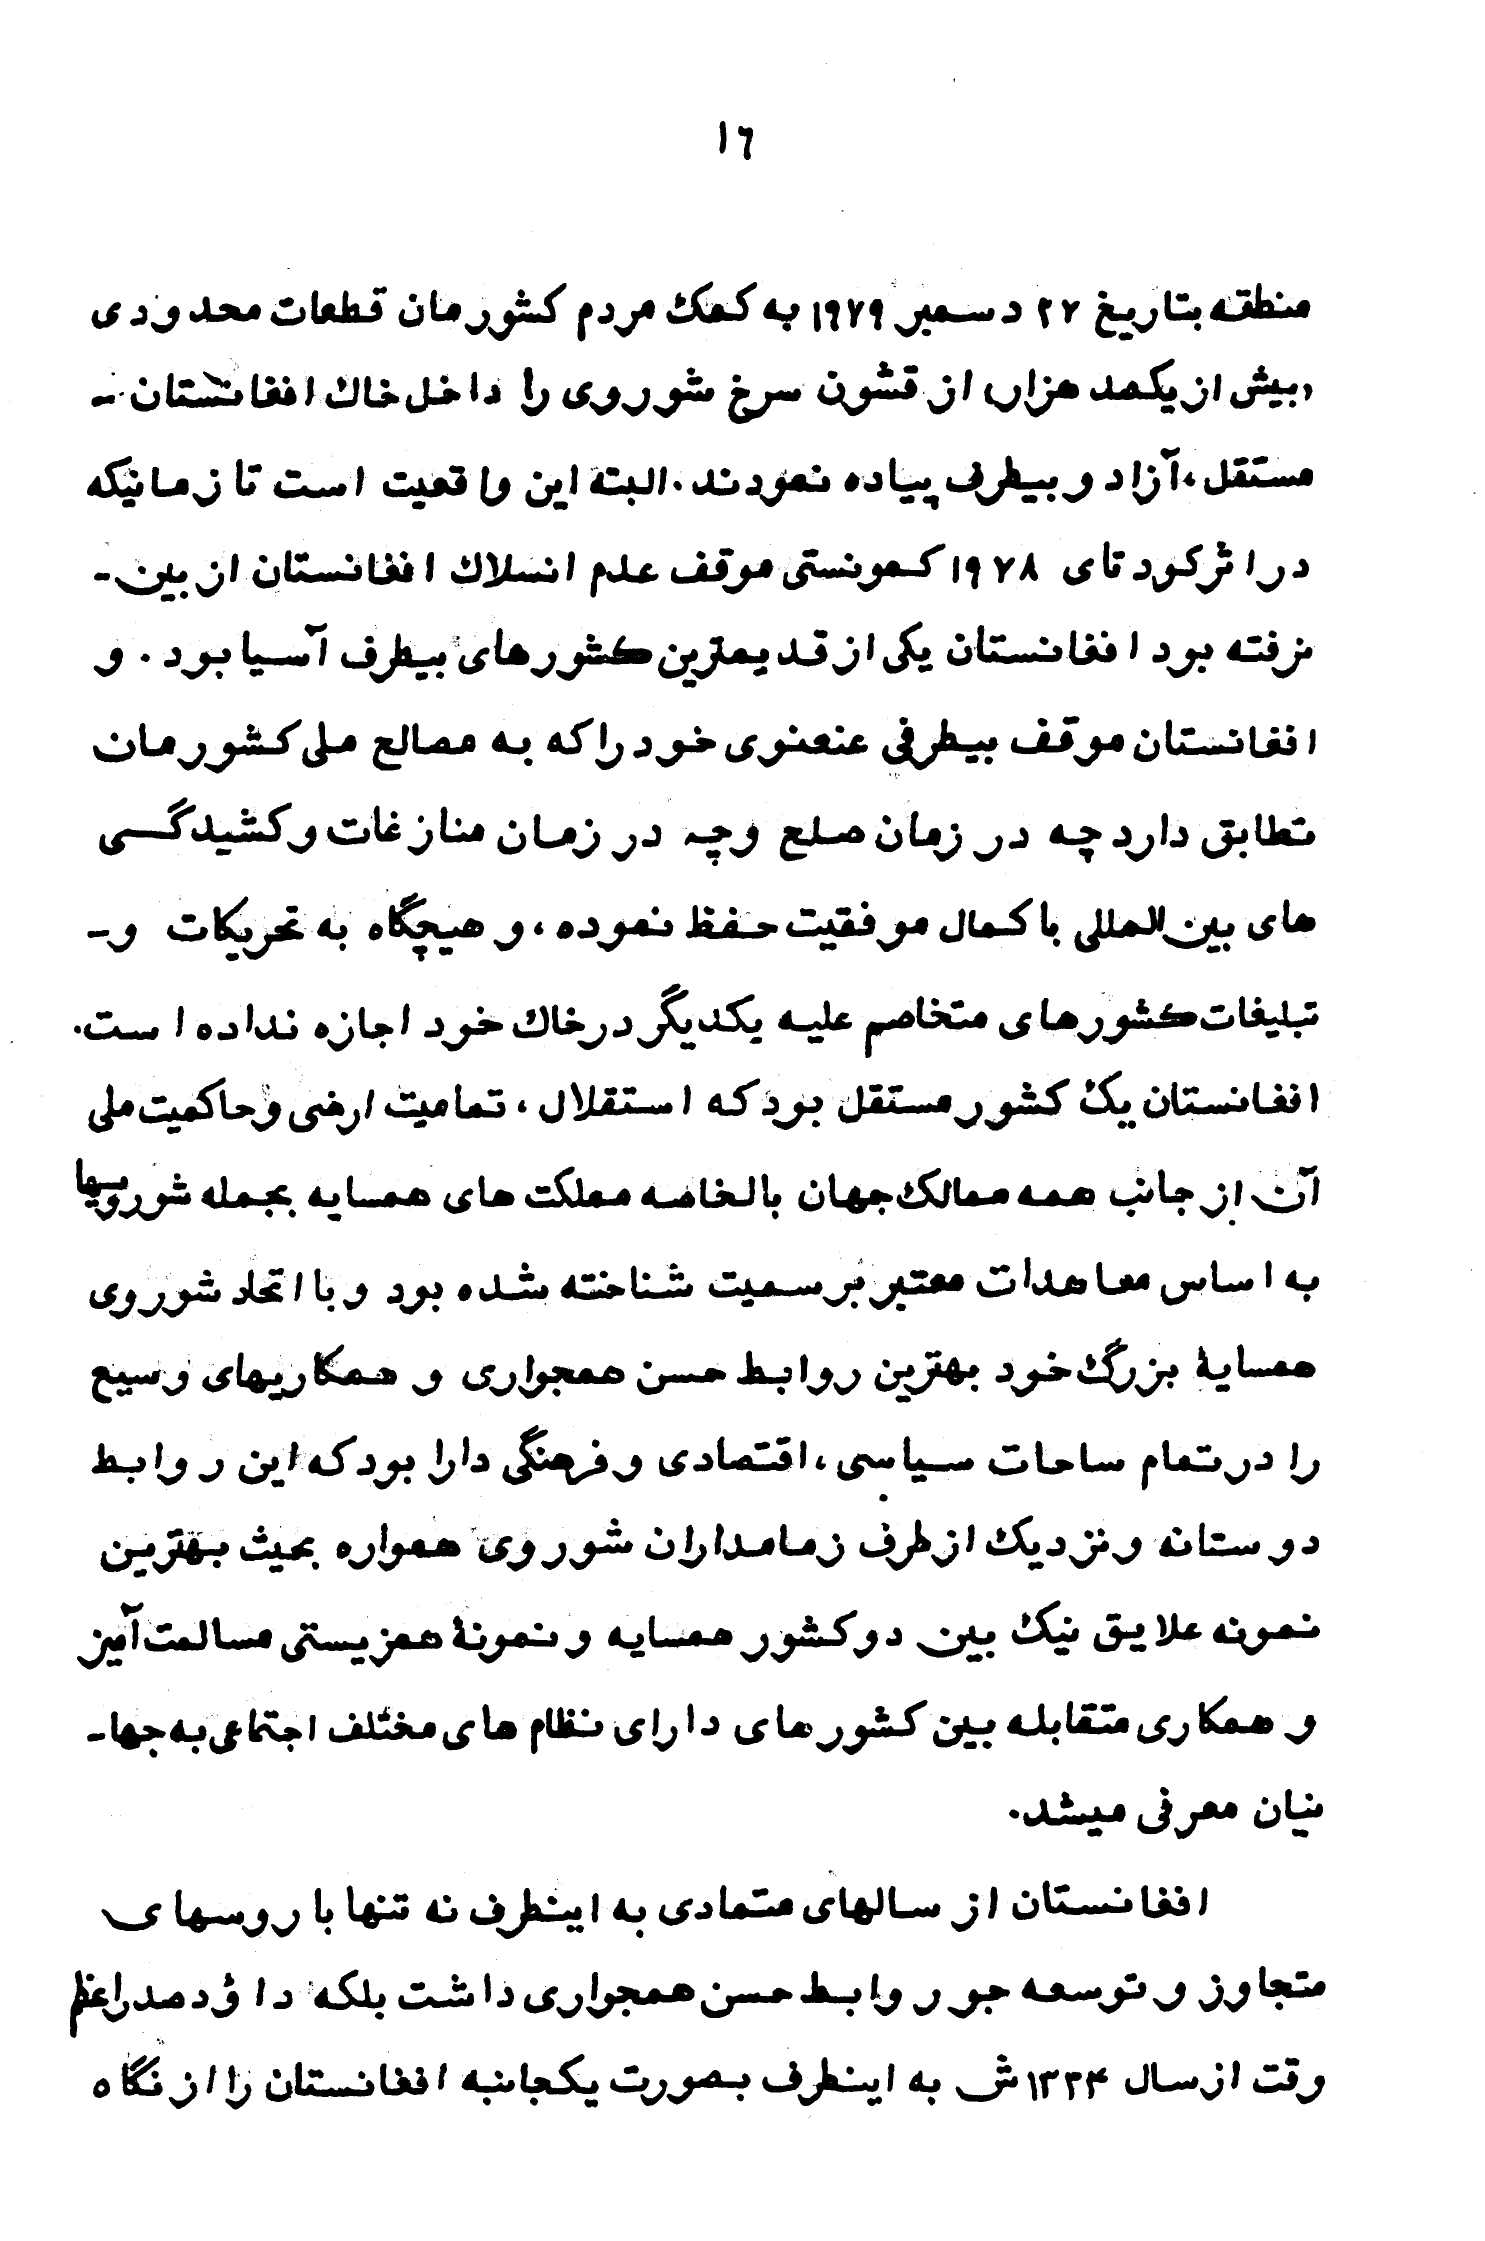 ١٦
منطقه بتاریخ ٢٧ دسمبر ١٩٧٩ به کمک مردم کشورمان قطعات محدودی
(بیش از یکصد هزار) از قشون سرخ شوروی را داخل خاک افغانستان -
مستقل، آزاد و بیطرف پیاده نمودند. البته این واقعیت است تا زمانیکه
در اثر کودتای ١٩٧٨ کمونستی موقف عدم انسلاک افغانستان از بین -
نرفته بود افغانستان یکی از قدیمترین کشورهای بیطرف آسیا بود. و
افغانستان موقف بیطرفی عنعنوی خود را که به مصالح ملی کشورمان
تطابق دارد چه در زمان صلح وچه در زمان منازعات و کشیدگی
های بین المللی با کمال موفقیت حفظ نموده، و هیچگاه به تحریکات و -
تبلیغات کشورهای متخاصم علیه یکدیگر در خاک خود اجازه نداده است.
افغانستان یک کشور مستقل بود که استقلال، تمامیت ارضی و حاکمیت ملی
آن از جانب همه ممالک جهان بالخاصه مملکت های همسایه بجمله شورویها
به اساس معاهدات معتبر برسمیت شناخته شده بود و با اتحاد شوروی
همسایهٔ بزرگ خود بهترین روابط حسن همجواری و همکاریهای وسیع
را در تمام ساحات سیاسی، اقتصادی و فرهنگی دارا بود که این روابط
دوستانه و نزدیک از طرف زمامداران شوروی همواره بحیث بهترین
نمونه علایق نیک بین دو کشور همسایه و نمونهٔ همزیستی مسالمت آمیز
و همکاری متقابله بین کشورهای دارای نظام های مختلف اجتماعی به جها -
نیان معرفی میشد.
افغانستان از سالهای متمادی به اینطرف نه تنها با روسهای
متجاوز و توسعه جو روابط حسن همجواری داشت بلکه داؤد صدراعظم
وقت از سال ١٣٣۴ ش به اینطرف بصورت یکجانبه افغانستان را از نگاه